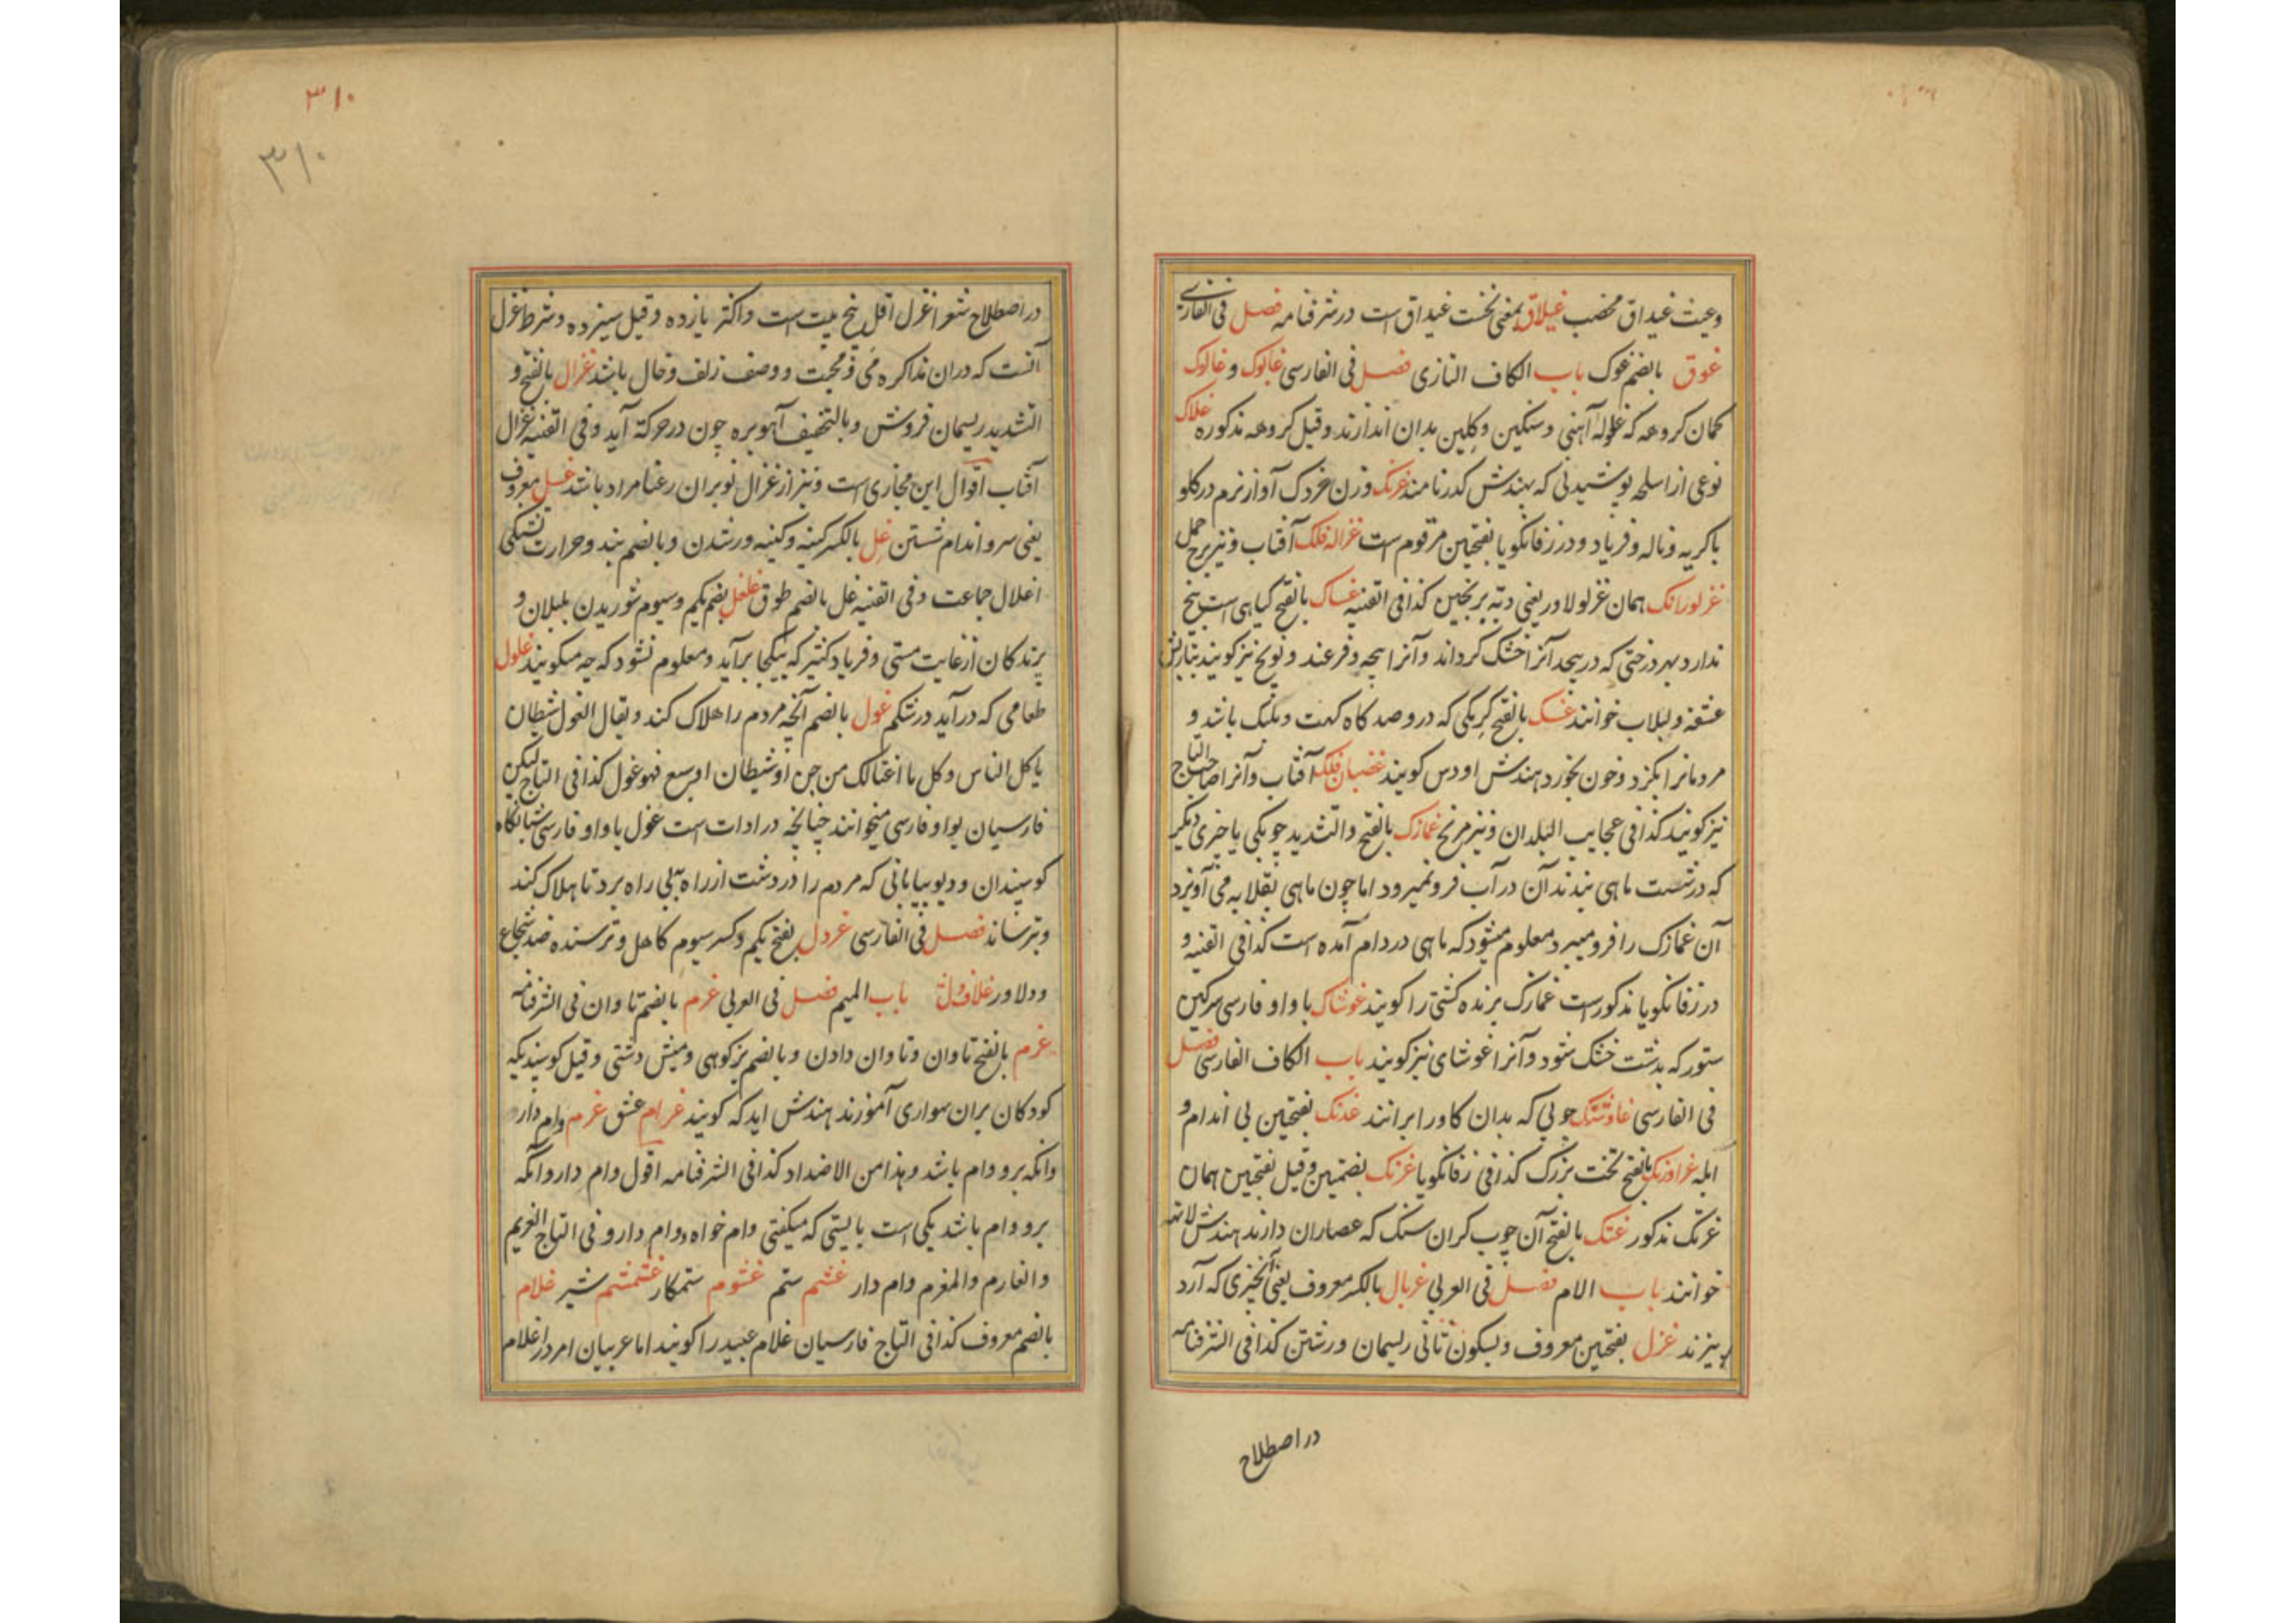 وعیث غیداق مخصب غیلاق بمعنی نخست غیداق است در شرفنامه فصل فی الفارسی
غوق بالضم غوک باب الکاف التازی فصل فی الفارسی غالوک و غالوک
کمان کروهه که غلوله آهنی و سنکین و کلین بدان اندازند و قیل کروهه مذکوره غلاک
نوعی از اسلحه پوشیدنی که بهندش کدر نامند غرنک وزن خردک آواز نرم در کلو
با کریه و ناله و فریاد و در زفانکویا بفتحتین مرقوم است غزاله فلک آفتاب و نیز برج حمل
غزلورانک همان غزلولاور یعنی دبه برنجین کذا فی القنیه غساک بالفتح کیاهی است بیخ
ندارد بهر درختی که در پیچد آنرا خشک کرداند و آنرا پیچه و فرغند و نویج نیز کویند بتازیش
عشقه و لبلاب خوانند غسک بالفتح کرمکی که در و صد کاه کهت و پلنک باشد و
مردمانرا بکزد و خون بخورد هندش اودس کویند غضبان فلک آفتاب و آنرا صاحب التاج
نیز کویند کذا فی عجایب البلدان و نیز مریخ غمازک بالفتح والتشدید چوبکی یا چیزی دیکر
که در شست ماهی بندند آن در آب فرو نمیرود اما چون ماهی بقلابه می آویزد
آن غمازک را فرو میبرد معلوم میشود که ماهی در دام آمده است کذا فی القنیه و
در زفانکویا مذکور است غمازک برنده کشتی را کویند غوشاک با واو فارسی سرکین
ستور که بدشت خشک شود و آنرا غوشای نیز کویند باب الکاف الفارسی فصل
فی الفارسی غاوشنک چوبی که بدان کاو را برانند غدنک بفتحتین بی اندام و
ابله غراورنک بالفتح تخت بزرک کذا فی زفانکویا غرنک بضمتین و قیل بفتحتین همان
غرنک مذکور غتنک بالفتح آن چوب کران سنک که عصاران دارند هندش لاتهه
خوانند باب اللام فصل فی العربی غربال بالکسر معروف یعنی آنچیزی که آرد
بیزند غزل بفتحتین معروف و بسکون ثانی ریسمان و رشتن کذا فی الشرفنامه
در اصطلاح
۳۱۰
۳۱۰
در اصطلاح شعرا غزل اقل پنج بیت است و اکثر یازده و قیل سیزده و شرط غزل
آنست که دران مذاکره می و محبت و وصف زلف و خال باشد غزال بالفتح و
التشدید ریسمان فروش و بالتخفیف آهوبره چون در حرکة آید و فی القنیه غزال
آفتاب اقوال این مجازی است و نیز از غزال نوبران رعنا مراد باشد غسل معروف
یعنی سر و اندام شستن غل بالکسر کینه و کینه ورشدن و بالضم بند و حرارت تشنکی
اغلال جماعت و فی القنیه غل بالضم طوق غلغل بضم یکم و سیوم شوریدن بلبلان و
پرندکان از غایت مستی و فریاد کثیر که بیکجا برآید و معلوم نشود که چه میکویند غلول
طعامی که در آید در شکم غول بالضم آنچه مردم را هلاک کند و یقال الغول شیطان
یاکل الناس و کل ما اغتالک من جن او شیطان او سبع فهو غول کذا فی التاج لیکن
فارسیان بواو فارسی میخوانند چنانچه در ادات است غول با واو فارسی شبانکاه
کوسپندان و دیو بیابانی که مردم را در دشت از راه به بی راه برد تا هلاک کند
و بترساند فصل فی الفارسی غردل بفتح یکم و کسر سیوم کاهل و ترسنده ضد شجاع
و دلاور باب المیم فصل فی العربی غرم بالضم تاوان فی الشرفنامه
غرم بالفتح تاوان و تاوان دادن و بالضم بزکوهی و میش دشتی و قیل کوسپندیکه
کودکان بران سواری آموزند هندش ایدکه کویند غرام عشق غرم وام دار
و انکه برو وام باشد و هذا من الاضداد کذا فی الشرفنامه اقول وام دار و انکه
برو وام باشد یکی است بایستی که میکفتی وام خواه و وام دار و فی التاج الغریم
والغارم والمغرم وام دار غشم ستم غشوم ستمکار غشمشم شیر غلام
بالضم معروف کذا فی التاج فارسیان غلام عبید را کویند اما عربیان امرد را غلام